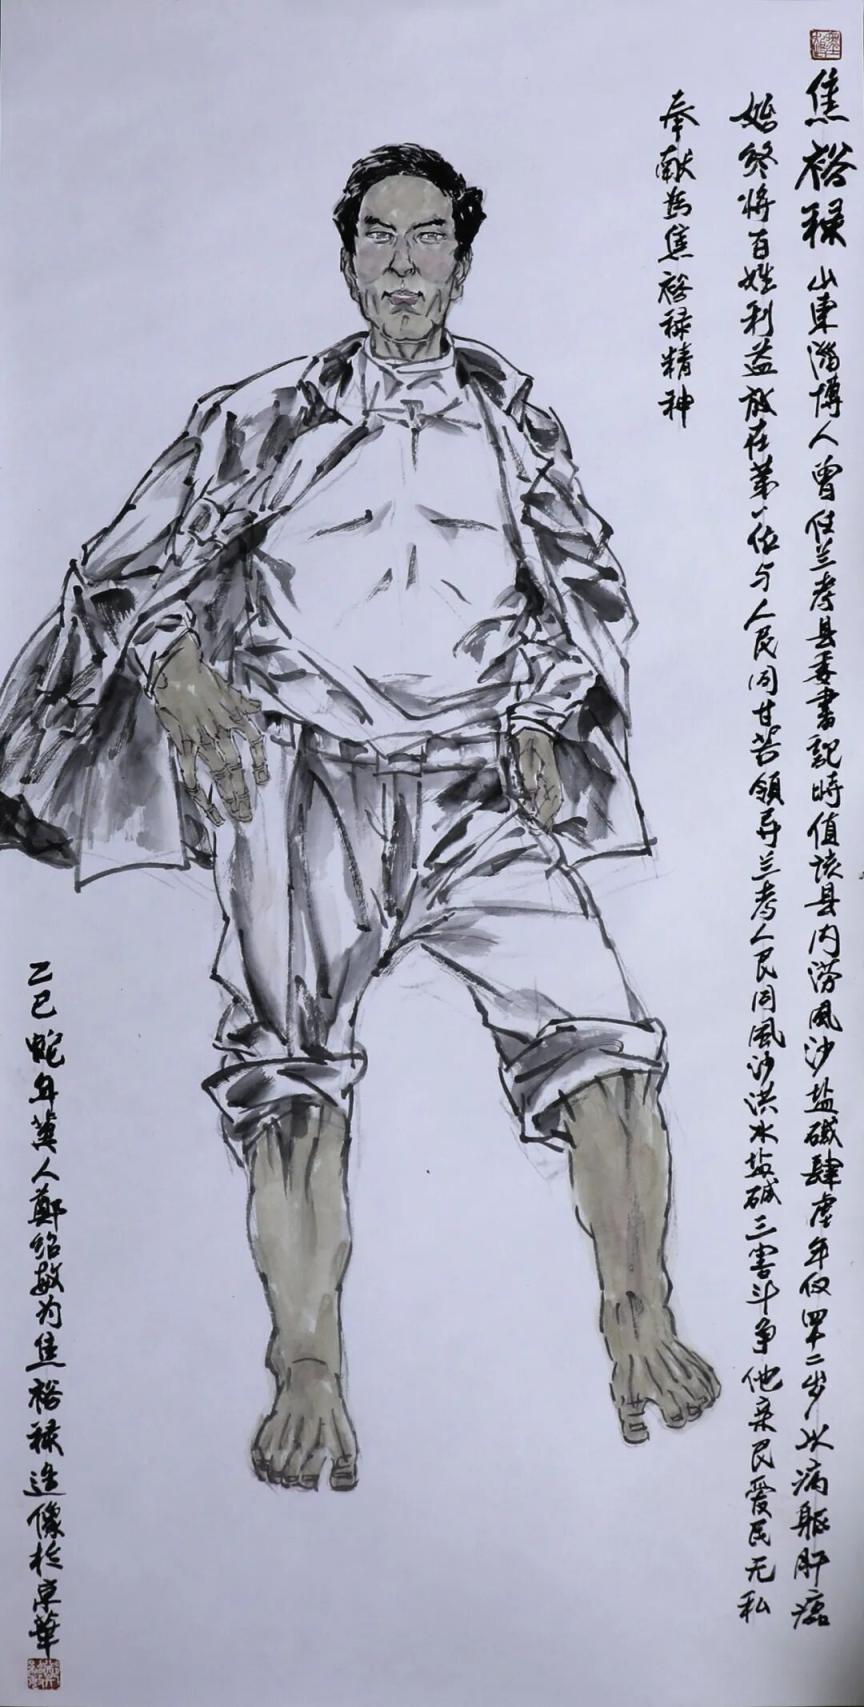 焦裕禄 山东淄博人曾任兰考县委书记時值该县内涝風沙盐碱肆虐年仅四十二岁从病躯肝癌
始终将百姓利益放在第一位与人民同甘苦领导兰考人民同風沙洪水盐碱三害斗争他亲民爱民无私
奉献為焦裕禄精神
乙巳蛇年冀人鄭绍敏为焦裕禄造像於京華